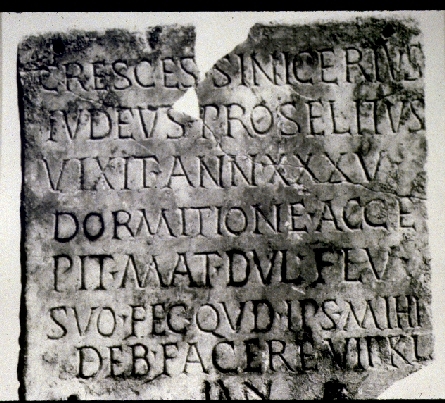 CRESCES SINICERIUS
IVDEVS·PROSELITVS
VIXIT·ANN·XXXV·
DORMITIONE·ACCE
PIT·MAT·DVL·
SVO·FEC·QVD·IPS·MIHI
DEB·FACERE VIII KL
IAN